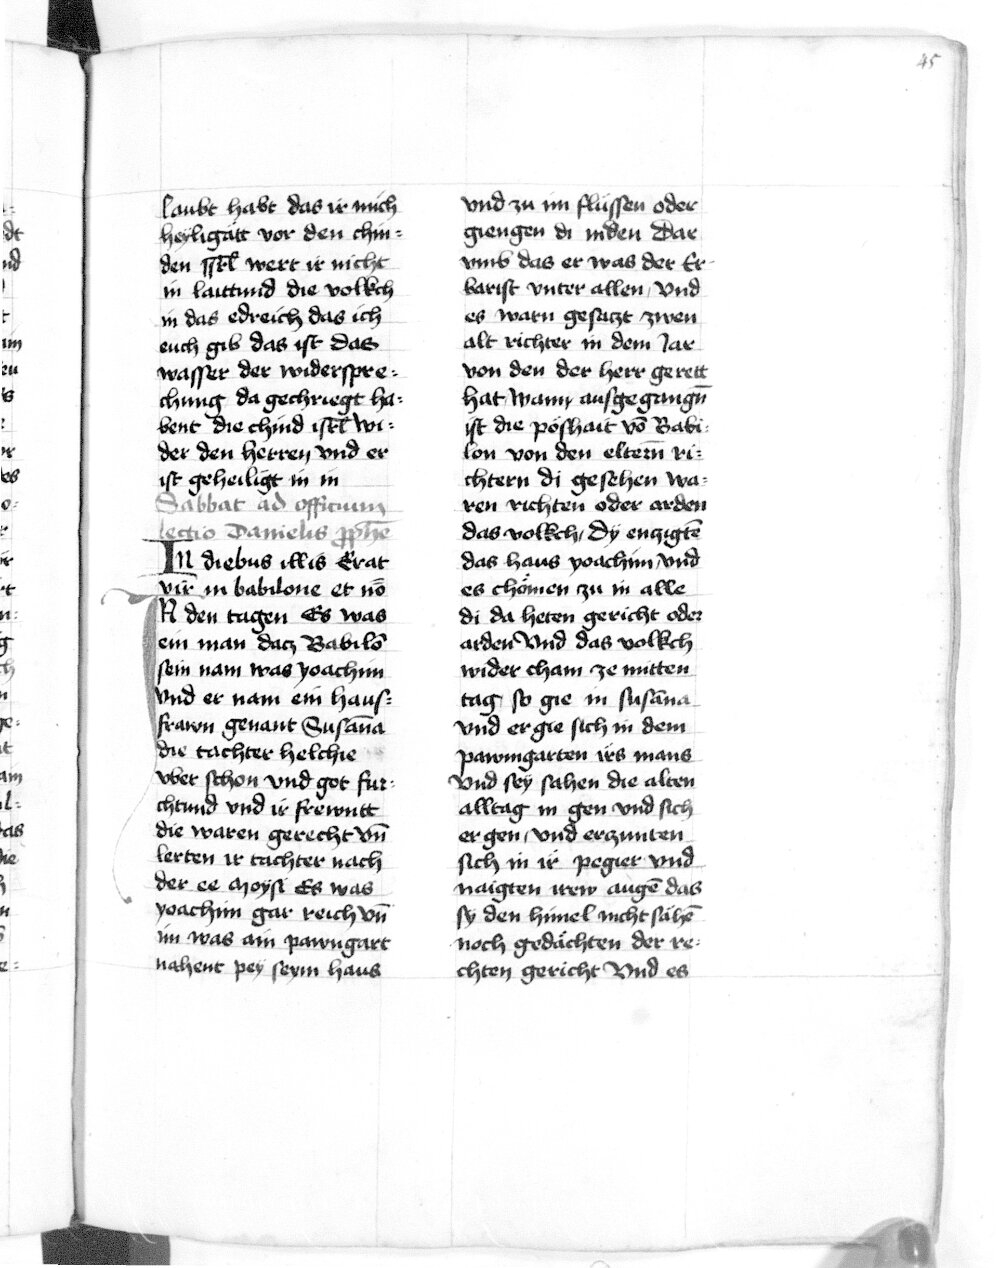 45
laubt habt das ir mich
heyligätt vor den chin=
den jsrl̄ wert ir nicht
in laittund die volkch
in das edreich das ich
euch gib das ist das
wasser der widerspre=
chung da gechriegt ha=
bent die chind isrl̄ wi=
der den herren vnd er
ist geheiligt in in
Sabbat ad officium
lectio Danielis ꝓphē
In diebus illis Erat
vir in babilone et nō
IN den tagen Es was
ein man datz Babilō
sein nam was yoachim
vnd er nam ein haus=
frawn genant Susāna
die tachter helchie
vber schon vnd got fur=
chtund vnd ir frewntt
die waren gerecht vn̄
lerten ir tachter nach
der ee Moysi Es was
yoachim gar reich vn̄
im was ain pawngart
nahent pey seym haus
vnd zu im flüssen oder
giengen di iuden Dar
vmb das er was der Er
barist vnter allen / Vnd
es warn gesatzt zwen
alt richter in dem Jar
von den der herr gerett
hat / wann ausgegangn̄
ist die poshait vō Babi=
lon von den eltern̄ ri=
chtern di gesehen wa=
ren richten oder arden
das volkch / Dy enzigtē
das haus yoachim / vnd
es chömen zu in alle
di da heten gericht oder
arden Vnd das volkch
wider cham ze mitten
tag / so gie in susāna
vnd ergie sich in dem
pawmgarten irs mans
Vnd sey sahen die alten
alltag in gen vnd sich
er gen / vnd erzunten
sich in ir pegier vnd
naigten irew augē das
sy den himel nicht sähē
noch gedächten der re=
chten gericht Vnd es